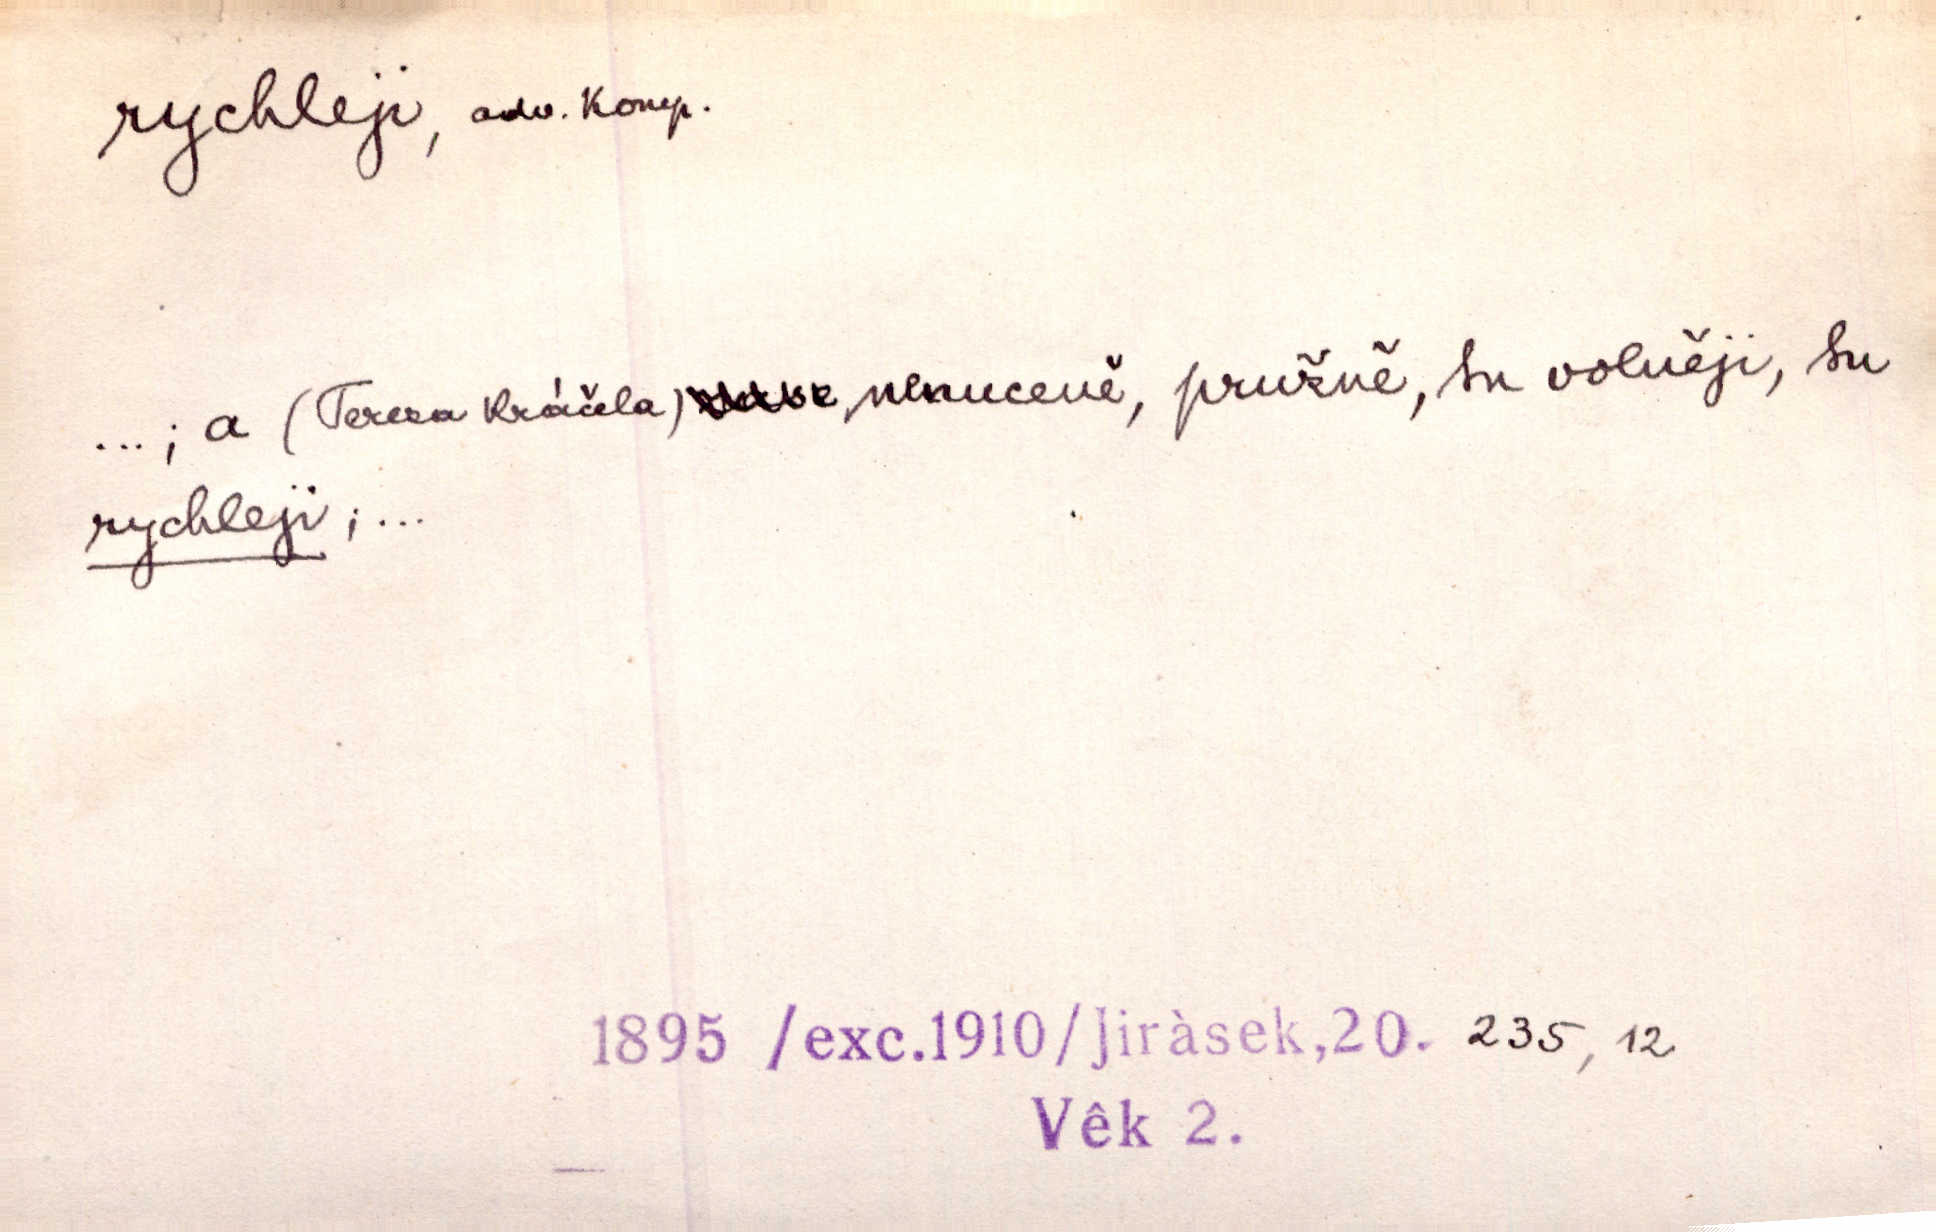 rychleji, adv. Komp.
...; a (Tereza Kráčela) nenuceně, pružně, tu volněji, tu
rychleji; ...
1895 /exc.1910/Jiràsek,20. 235, 12
Vêk 2.